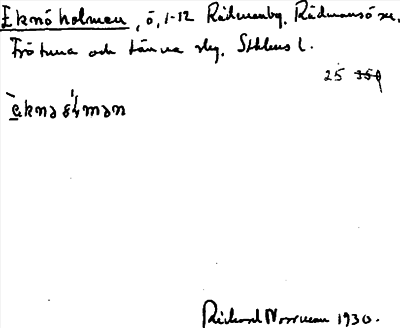 Eknöholmen, ö, 1-12 Rådmanby, Rådmansö sn.
Frötuna och Länna slg. Sthlms l.
25
Richard Norrman 1930.